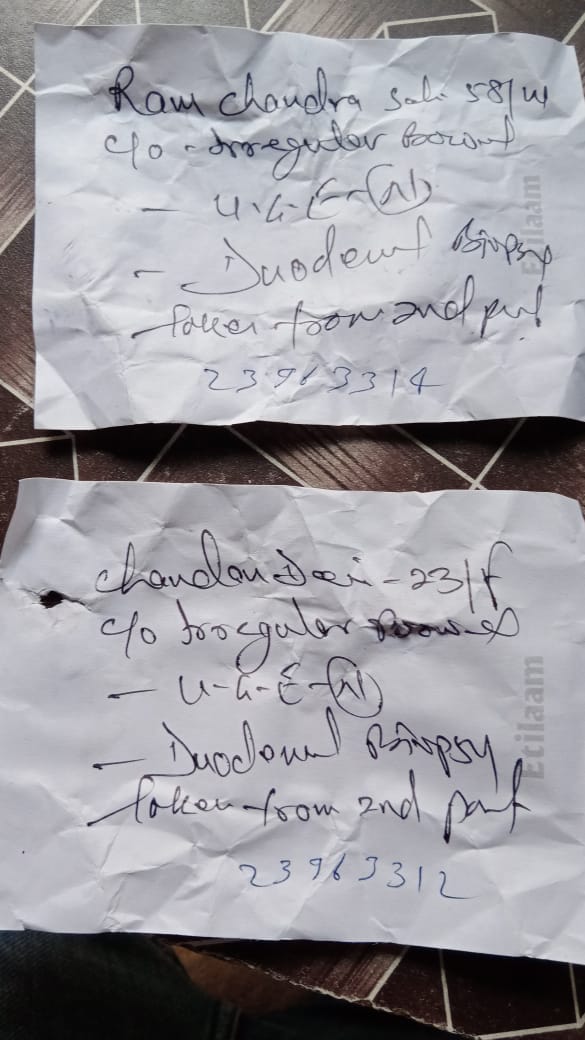 Ram Chandra Sah 58/M
c/o - Irregular Bowel
- U.G.E - (N)
- Duodenal Biopsy
taken from 2nd part
23963314
Chandan Devi - 23/F
c/o Irregular Bowel
- U-G-E - (N)
- Duodenal Biopsy
taken from 2nd part
23963312
Etilaam
Etilaam